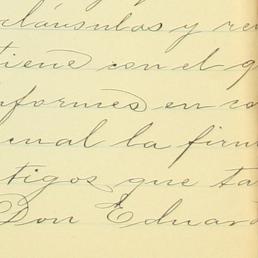 cláusulas y re
tiene con el q
nformes en co
unal la firm
tigos que ta
Don Eduard